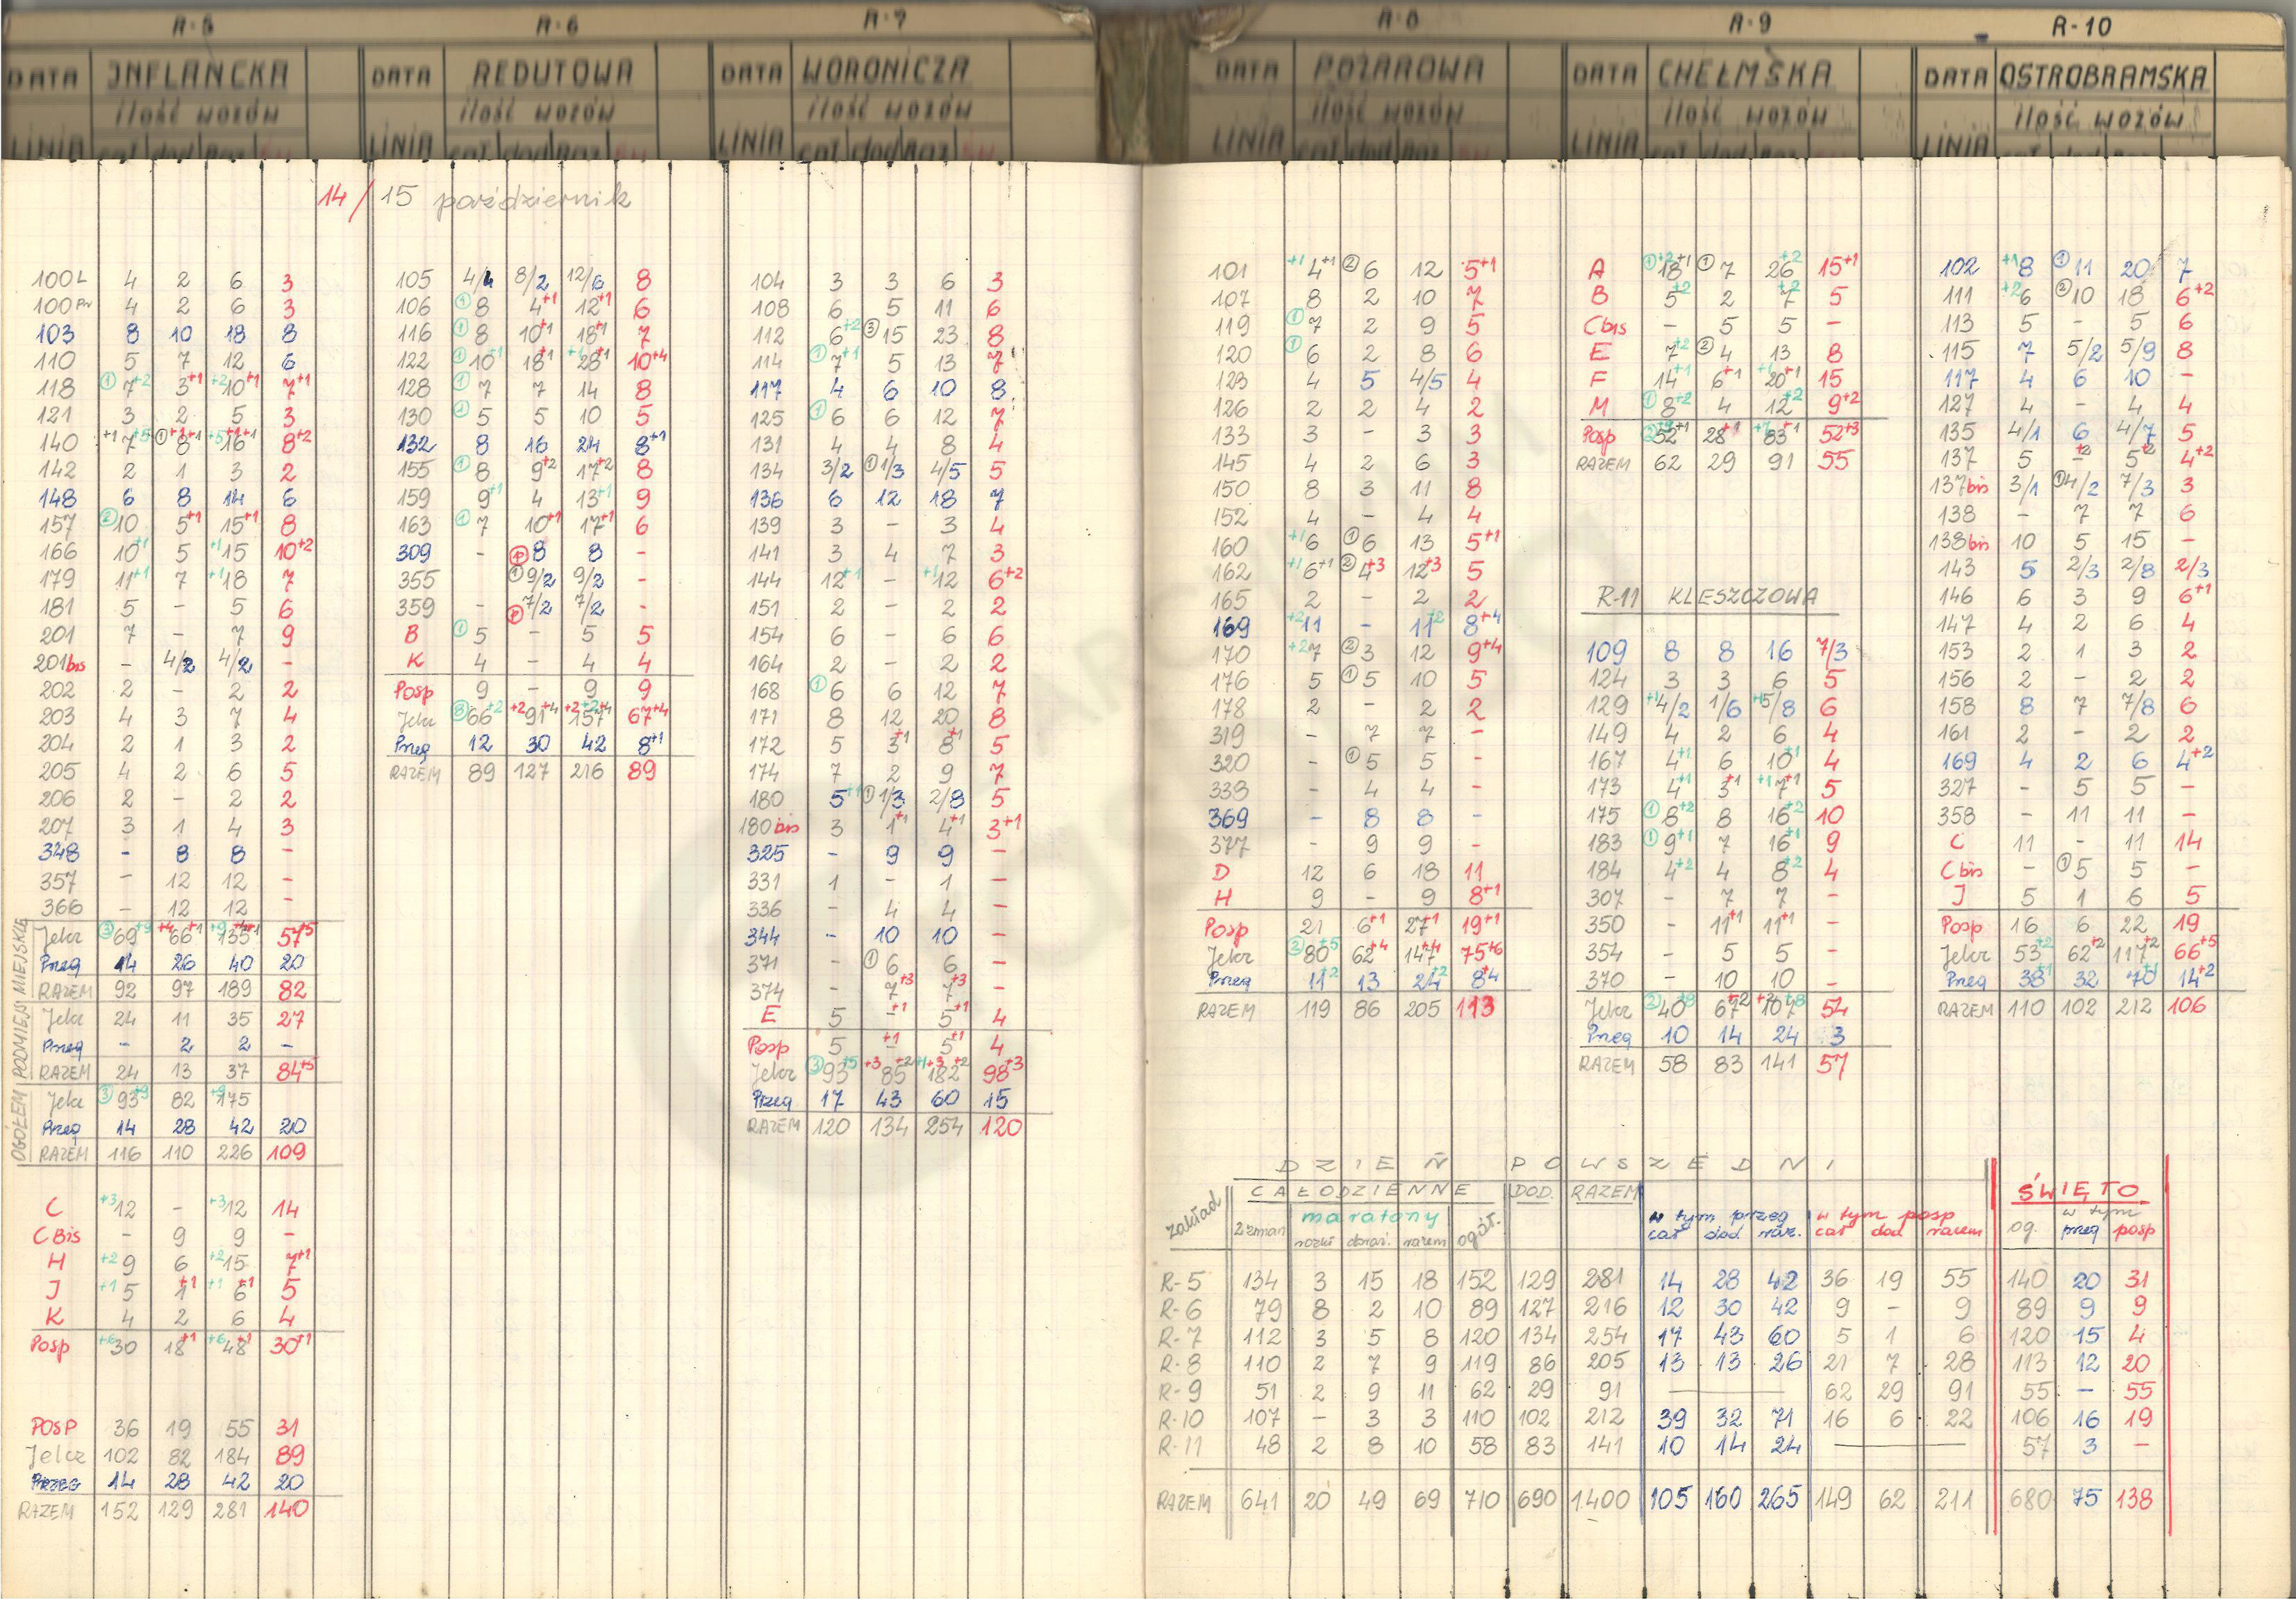 R-5 R-6 R-7 R-8 R-9 R-10
DATA INFLANCKA DATA REDUTOWA DATA WORONICZA DATA POŻAROWA DATA CHEŁMSKA DATA OSTROBRAMSKA
ilość wozów ilość wozów ilość wozów ilość wozów ilość wozów ilość wozów
LINIA LINIA LINIA LINIA LINIA LINIA
14/15 październik
100L 4 2 6 3
100Pr 4 2 6 3
103 8 10 18 8
110 5 7 12 6
118 ① 7+2 3+1 +2 10+1 7+1
121 3 2 5 3
140 +1 7+5 ① 8+1+1 +5 16+1+1 8+2
142 2 1 3 2
148 6 8 14 6
157 ② 10 5+1 15+1 8
166 10+1 5 +1 15 10+2
179 11+1 7 +1 18 7
181 5 - 5 6
201 7 - 7 9
201bis - 4/2 4/2 -
202 2 - 2 2
203 4 3 7 4
204 2 1 3 2
205 4 2 6 5
206 2 - 2 2
207 3 1 4 3
348 - 8 8 -
357 - 12 12 -
366 - 12 12 -
MIEJSKIE
Jelcz ③ 69+9 +4 66+1 +9 135 57+5
Przeg 14 26 40 20
RAZEM 92 97 189 82
PODMIEJS
Jelcz 24 11 35 27
Przeg - 2 2 -
RAZEM 24 13 37 84+5
OGÓŁEM
Jelcz ③ 93+9 82 +9 175
Przeg 14 28 42 20
RAZEM 116 110 226 109
C +3 12 - +3 12 14
C Bis - 9 9 -
H +2 9 6 +2 15 7+1
J +1 5 1+1 +1 6+1 5
K 4 2 6 4
Posp +6 30 18+1 +6 48+1 30+1
POSP 36 19 55 31
Jelcz 102 82 184 89
PRZEG 14 28 42 20
RAZEM 152 129 281 140
105 4/4 8/2 12/6 8
106 ① 8 4+1 12+1 6
116 ① 8 10+1 18+1 7
122 ① 10+1 18+1 +1 28+1 10+4
128 ① 7 7 14 8
130 ① 5 5 10 5
132 8 16 24 8+1
155 ① 8 9+2 17+2 8
159 9+1 4 13+1 9
163 ① 7 10+1 17+1 6
309 - ⓟ 8 8 -
355 ① 9/2 9/2 -
359 - ⓟ 7/2 7/2 -
B ① 5 - 5 5
K 4 - 4 4
Posp 9 - 9 9
Jelcz ⑧ 66+2 +2 91+4 +2 157+2+4 67+4
Przeg 12 30 42 8+1
RAZEM 89 127 216 89
104 3 3 6 3
108 6 5 11 6
112 6+2 ③ 15 23 8
114 ① 7+1 5 13 7
117 4 6 10 8
125 ① 6 6 12 7
131 4 4 8 4
134 3/2 ① 1/3 4/5 5
136 6 12 18 7
139 3 - 3 4
141 3 4 7 3
144 12+1 - +1 12 6+2
151 2 - 2 2
154 6 - 6 6
164 2 - 2 2
168 ① 6 6 12 7
171 8 12 20 8
172 5 3+1 8+1 5
174 7 2 9 7
180 5+1 ① 1/3 2/8 5
180bis 3 1+1 4+1 3+1
325 - 9 9 -
331 1 - 1 -
336 - 4 4 -
344 - 10 10 -
371 - ① 6 6 -
374 - 7+3 7+3 -
E 5 -+1 5+1 4
Posp 5 +1 5+1 4
Jelcz ③ 93+5 +3 85+2 +1+3 182+2 98+3
Przeg 17 43 60 15
RAZEM 120 134 254 120
101 +1 4+1 ② 6 12 5+1
107 8 2 10 7
119 ① 7 2 9 5
120 ① 6 2 8 6
123 4 5 4/5 4
126 2 2 4 2
133 3 - 3 3
145 4 2 6 3
150 8 3 11 8
152 4 - 4 4
160 +1 6 ① 6 13 5+1
162 +1 6+1 ② 4+3 12+3 5
165 2 - 2 2
169 +2 11 - 11+2 8+4
170 +2 7 ② 3 12 9+4
176 5 ① 5 10 5
178 2 - 2 2
319 - 7 7 -
320 - ① 5 5 -
338 - 4 4 -
369 - 8 8 -
377 - 9 9 -
D 12 6 18 11
H 9 - 9 8+1
Posp 21 6+1 27+1 19+1
Jelcz ② 80+5 62+4 147+4 75+6
Przeg 11+2 13 24+2 8+4
RAZEM 119 86 205 113
A ① 18+2+1 ① 7 26+2 15+1
B 5+2 2 7+2 5
Cbis - 5 5 -
E 7+2 ② 4 13 8
F 14+1 6+1 +1 20+1 15
M ① 8+2 4 12+2 9+2
Posp ② 52+1 28+1 83+1 52+3
RAZEM 62 29 91 55
R-11 KLESZCZOWA
109 8 8 16 7/3
124 3 3 6 5
129 +1 4/2 1/6 +1 5/8 6
149 4 2 6 4
167 4+1 6 10+1 4
173 4+1 3+1 +1 7+1 5
175 ① 8+2 8 16+2 10
183 ① 9+1 7 16+1 9
184 4+2 4 8+2 4
307 - 7 7 -
350 - 11+1 11+1 -
354 - 5 5 -
370 - 10 10 -
Jelcz ② 40+8 67+2 +2 107+8 54
Przeg 10 14 24 3
RAZEM 58 83 141 57
102 +1 8 ① 11 20 7
111 +2 6 ② 10 18 6+2
113 5 - 5 6
115 7 5/2 5/9 8
117 4 6 10 -
127 4 - 4 4
135 4/1 6 4/7 5
137 5 -+2 5+2 4+2
137bis 3/1 ① 4/2 7/3 3
138 - 7 7 6
138bis 10 5 15 -
143 5 2/3 2/8 2/3
146 6 3 9 6+1
147 4 2 6 4
153 2 1 3 2
156 2 - 2 2
158 8 7 7/8 6
161 2 - 2 2
169 4 2 6 4+2
327 - 5 5 -
358 - 11 11 -
C 11 - 11 14
C bis - ① 5 5 -
J 5 1 6 5
Posp 16 6 22 19
Jelcz 53+2 62+2 117+2 66+5
Przeg 38+1 32 70+1 14+2
RAZEM 110 102 212 106
DZIEŃ POWSZEDNI
zakład CAŁODZIENNE DOD. RAZEM w tym przeg w tym posp ŚWIĘTO
2 zmian maratony ogół. cał dod raz. cał dod razem og. w tym
rozkł doraź. razem przeg posp
R-5 134 3 15 18 152 129 281 14 28 42 36 19 55 140 20 31
R-6 79 8 2 10 89 127 216 12 30 42 9 - 9 89 9 9
R-7 112 3 5 8 120 134 254 17 43 60 5 1 6 120 15 4
R-8 110 2 7 9 119 86 205 13 13 26 21 7 28 113 12 20
R-9 51 2 9 11 62 29 91 — 62 29 91 55 - 55
R-10 107 - 3 3 110 102 212 39 32 71 16 6 22 106 16 19
R-11 48 2 8 10 58 83 141 10 14 24 — 57 3 -
RAZEM 641 20 49 69 710 690 1400 105 160 265 149 62 211 680 75 138